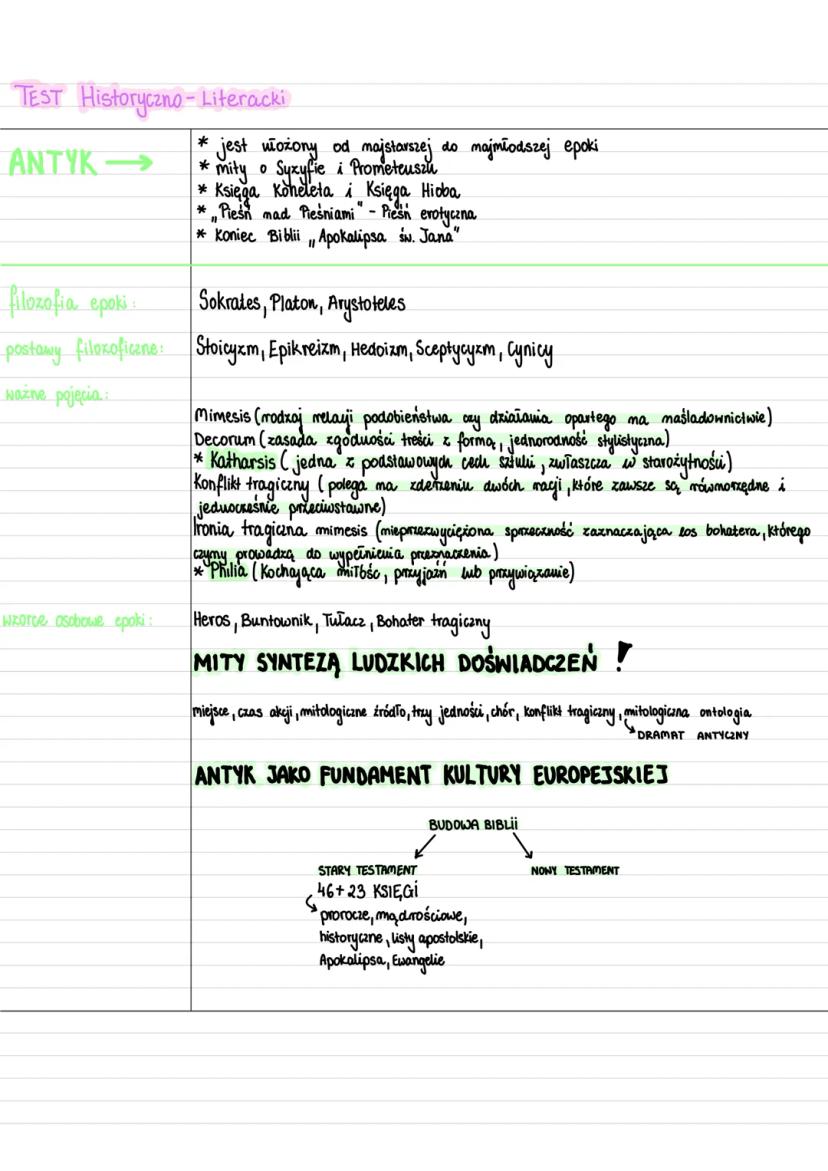 TEST Historyczno-Literacki
ANTYK →
* jest ułożony od najstarszej do najmłodszej epoki
* mity o Syzyfie i Prometeuszu
* Księga Koheleta i Księga Hioba
* „Pieśń nad Pieśniami" - Pieśń erotyczna
* Koniec Biblii „Apokalipsa św. Jana"
filozofia epoki:
Sokrates, Platon, Arystoteles
postawy filozoficzne:
Stoicyzm, Epikreizm, Hedoizm, Sceptycyzm, Cynicy
ważne pojęcia:
Mimesis (rodzaj relacji podobieństwa czy działania opartego na naśladownictwie)
Decorum (zasada zgodności treści z formą, jednorodność stylistyczna)
* Katharsis (jedna z podstawowych cech sztuki, zwłaszcza w starożytności)
Konflikt tragiczny (polega na zderzeniu dwóch racji, które zawsze są równorzędne i
jednocześnie przeciwstawne)
Ironia tragiczna mimesis (nieprzezwyciężona sprzeczność zaznaczająca los bohatera, którego
czyny prowadzą do wypełnienia przeznaczenia)
* Philia (Kochająca miłość, przyjaźń lub przywiązanie)
wzorce osobowe epoki:
Heros, Buntownik, Tułacz, Bohater tragiczny
MITY SYNTEZĄ LUDZKICH DOŚWIADCZEŃ !
miejsce, czas akcji, mitologiczne źródło, trzy jedności, chór, konflikt tragiczny, mitologiczna ontologia
DRAMAT ANTYCZNY
ANTYK JAKO FUNDAMENT KULTURY EUROPEJSKIEJ
BUDOWA BIBLII
STARY TESTAMENT
NOWY TESTAMENT
46+23 KSIĘGI
prorocze, mądrościowe,
historyczne, listy apostolskie,
Apokalipsa, Ewangelie